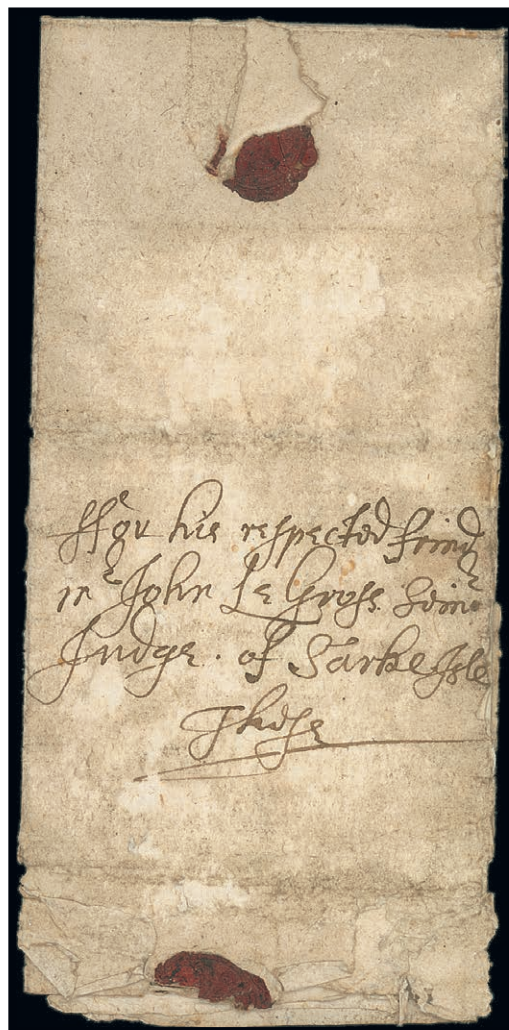 ffor his respected frind
mr John Le Gross Senr
Judge . of Sarke Isle
These